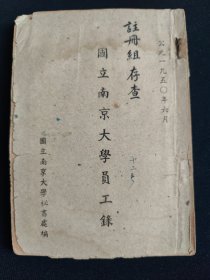 公元一九五〇年六月
註冊組存查
國立南京大學員工錄
國立南京大學祕書處編